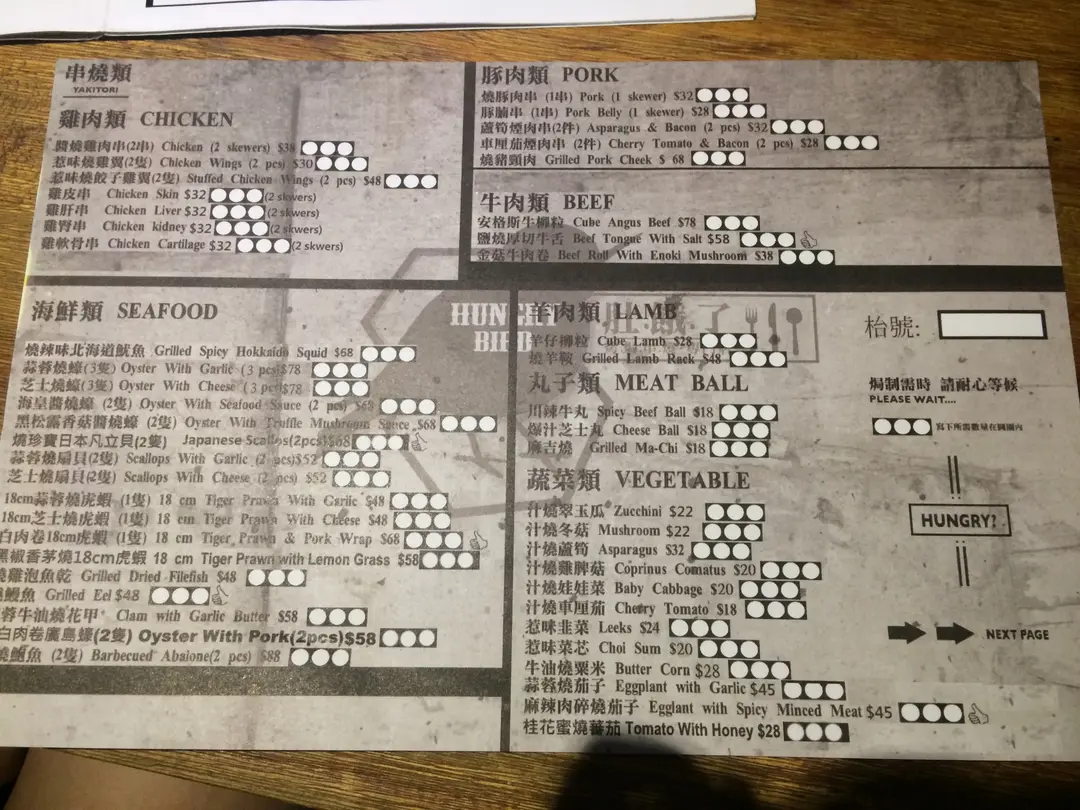 串燒類
YAKITORI
雞肉類 CHICKEN
醬燒雞肉串(2串) Chicken (2 skewers) $38
惹味燒雞翼(2隻) Chicken Wings (2 pcs) $30
惹味燒餃子雞翼(2隻) Stuffed Chicken Wings (2 pcs) $48
雞皮串 Chicken Skin $32 (2 skwers)
雞肝串 Chicken Liver $32 (2 skwers)
雞腎串 Chicken kidney $32 (2 skwers)
雞軟骨串 Chicken Cartilage $32 (2 skwers)
豚肉類 PORK
燒豚肉串 (1串) Pork (1 skewer) $32
豚腩串 (1串) Pork Belly (1 skewer) $28
蘆筍煙肉串(2件) Asparagus & Bacon (2 pcs) $32
車厘茄煙肉串 (2件) Cherry Tomato & Bacon (2 pcs) $28
燒豬頸肉 Grilled Pork Cheek $ 68
牛肉類 BEEF
安格斯牛柳粒 Cube Angus Beef $78
鹽燒厚切牛舌 Beef Tongue With Salt $58
金菇牛肉卷 Beef Roll With Enoki Mushroom $38
海鮮類 SEAFOOD
燒辣味北海道魷魚 Grilled Spicy Hokkaido Squid $68
蒜蓉燒蠔(3隻) Oyster With Garlic (3 pcs)$78
芝士燒蠔(3隻) Oyster With Cheese (3 pcs)$78
海皇醬燒蠔 (2隻) Oyster With Seafood Sauce (2 pcs) $68
黑松露香菇醬燒蠔 (2隻) Oyster With Truffle Mushroom Sauce $68
燒珍寶日本凡立貝(2隻) Japanese Scallops(2pcs)$68
蒜蓉燒扇貝(2隻) Scallops With Garlic (2 pcs)$52
芝士燒扇貝(2隻) Scallops With Cheese (2 pcs) $52
18cm蒜蓉燒虎蝦 (1隻) 18 cm Tiger Prawn With Garlic $48
18cm芝士燒虎蝦 (1隻) 18 cm Tiger Prawn With Cheese $48
白肉卷18cm虎蝦 (1隻) 18 cm Tiger Prawn & Pork Wrap $68
黑椒香茅燒18cm虎蝦 18 cm Tiger Prawn with Lemon Grass $58
燒雞泡魚乾 Grilled Dried Filefish $48
燒鰻魚 Grilled Eel $48
蒜蓉牛油燒花甲 Clam with Garlic Butter $58
白肉卷廣島蠔(2隻) Oyster With Pork(2pcs)$58
燒鮑魚 (2隻) Barbecued Abalone(2 pcs) $88
HUNGRY
BIRD
肚餓了
羊肉類 LAMB
羊仔柳粒 Cube Lamb $28
燒羊鞍 Grilled Lamb Rack $48
丸子類 MEAT BALL
川辣牛丸 Spicy Beef Ball $18
爆汁芝士丸 Cheese Ball $18
麻吉燒 Grilled Ma-Chi $18
蔬菜類 VEGETABLE
汁燒翠玉瓜 Zucchini $22
汁燒冬菇 Mushroom $22
汁燒蘆筍 Asparagus $32
汁燒雞脾菇 Coprinus Comatus $20
汁燒娃娃菜 Baby Cabbage $20
汁燒車厘茄 Cherry Tomato $18
惹味韭菜 Leeks $24
惹味菜芯 Choi Sum $20
牛油燒粟米 Butter Corn $28
蒜蓉燒茄子 Eggplant with Garlic $45
麻辣肉碎燒茄子 Egglant with Spicy Minced Meat $45
桂花蜜燒蕃茄 Tomato With Honey $28
枱號:
焗制需時 請耐心等候
PLEASE WAIT....
寫下所需數量在圓圈內
HUNGRY?
NEXT PAGE